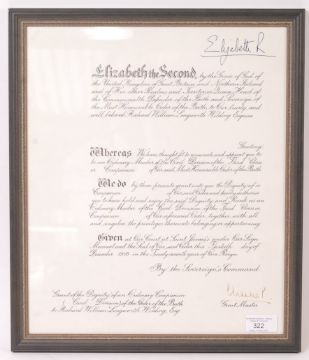 Elizabeth R
Elizabeth the Second, by the Grace of God of
the United Kingdom of Great Britain and Northern Ireland
and of Her other Realms and Territories Queen, Head of
the Commonwealth, Defender of the Faith and Sovereign of
the Most Honourable Order of the Bath, to Our trusty and
well beloved Richard William Longworth Wilding Esquire
Greeting
Whereas We have thought fit to nominate and appoint you to
be an Ordinary Member of the Civil Division of the Third Class
or Companion of Our said Most Honourable Order of the Bath
We do by these presents grant unto you the Dignity of a
Companion of Our said Order and hereby authorise
you to have hold and enjoy the said Dignity and Rank as an
Ordinary Member of the Civil Division of the Third Class
or Companion of Our aforesaid Order, together with all
and singular the privileges thereunto belonging or appertaining
Given at Our Court at Saint James's under Our Sign
Manual and the Seal of Our said Order this day of
December in the year of Our Reign.
By the Sovereign's Command.
Grand Master
Grant of the Dignity of an Ordinary Companion
Civil Division of the Order of the Bath
to Richard William Longworth Wilding, Esq.
322